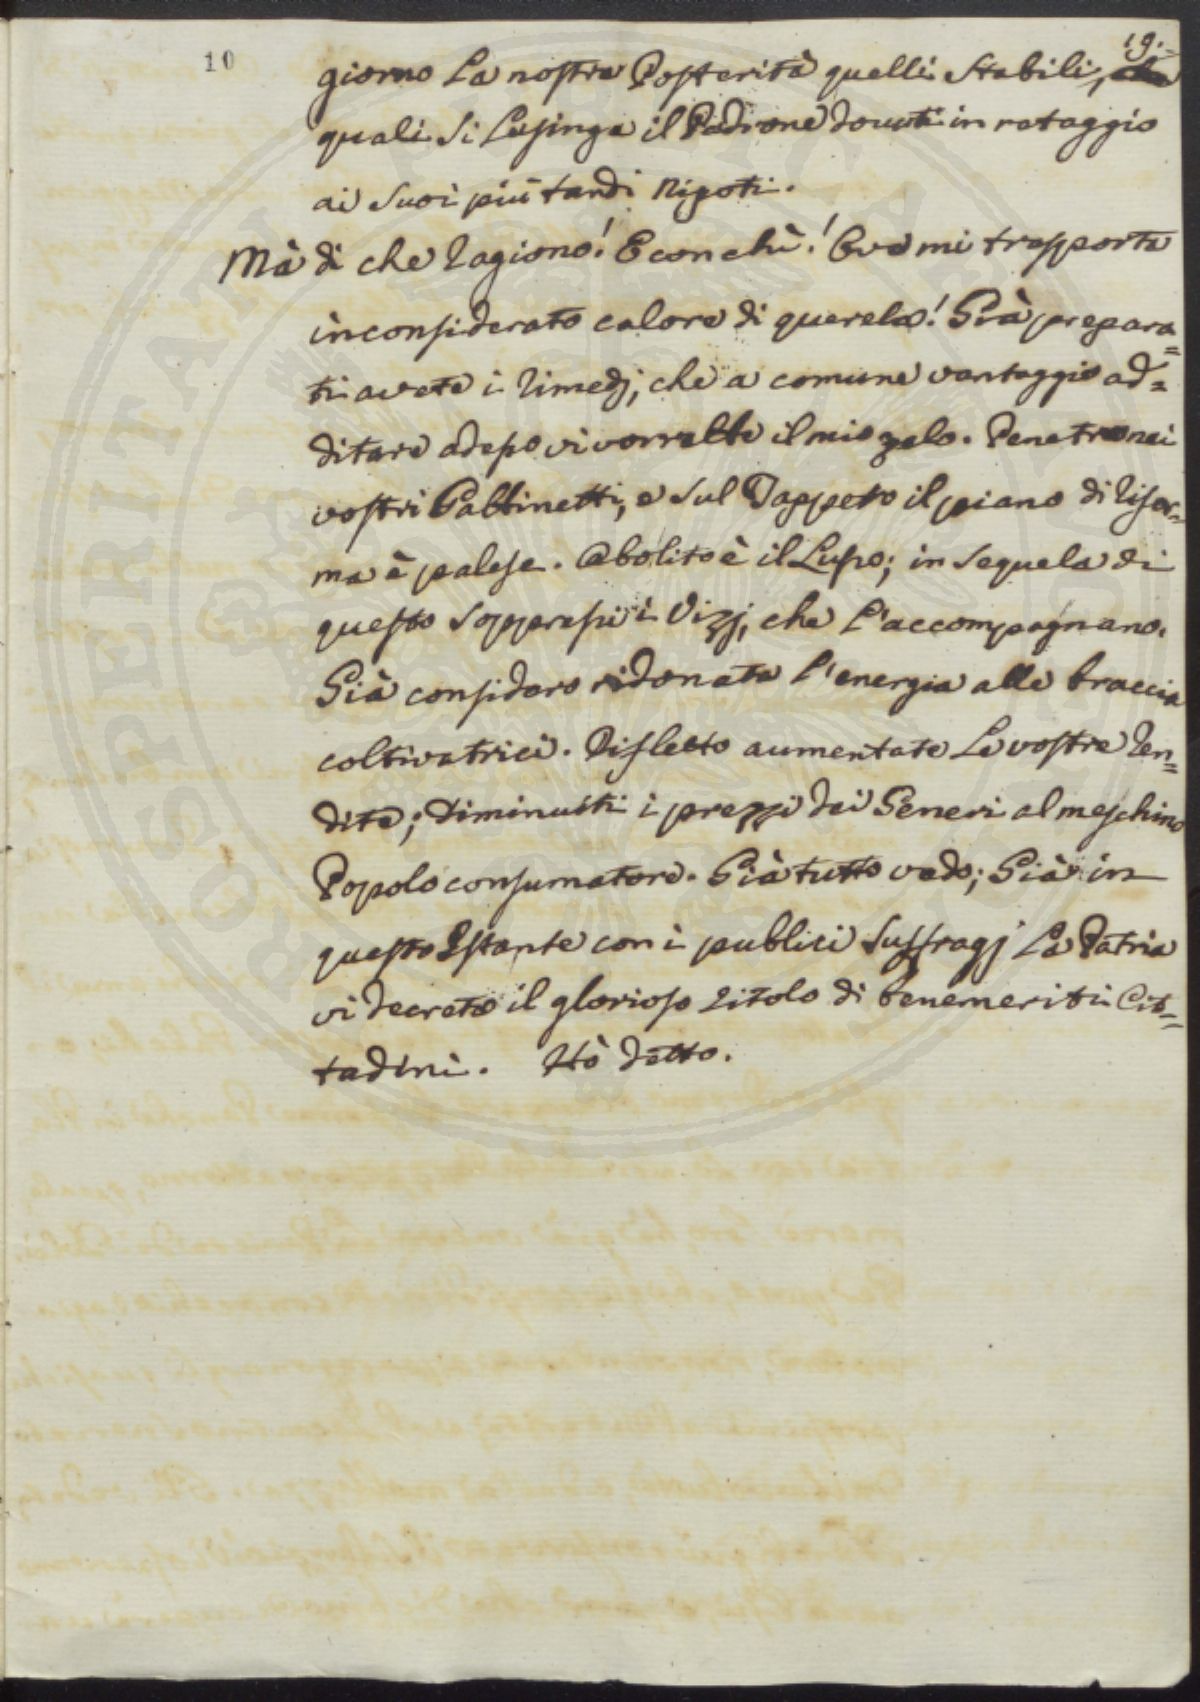 10
19.
giorno La nostra Posterità quelli Stabili,
quali Si Lusinga il Padrone dovuti in retaggio
ai Suoi più tardi Nipoti.
Mà di che ragiono! E con chì! Ove mi trasporta
inconsiderato calore di querela! Già prepara=
ti avete i rimedj, che a comune vantaggio ad=
ditare adesso vi vorrebbe il mio zelo. Penetro nei
vostri Gabbinetti, e sul Tappeto il piano di rifor=
ma è palese. Abolito è il Lusso; in sequela di
questo soppressi i Vizj, che l'accompagnano.
Già considero ridonata l'energia alle braccia
coltivatrici. Rifletto aumentate Le vostre ren=
dite; diminuiti i prezzi dei Generi al meschino
Popolo consumatore. Già tutto vedo; Già in
questo Istante con i publici Suffragj La Patria
vi decreta il glorioso titolo di benemeriti Cit=
tadini. Hò detto.
PROSPERITATI PUBLICAE AUGENDAE